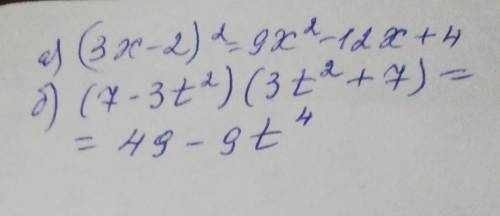 а) (3x-2)² = 9x² - 12x + 4
б) (7 - 3t²)(3t² + 7) =
= 49 - 9t⁴